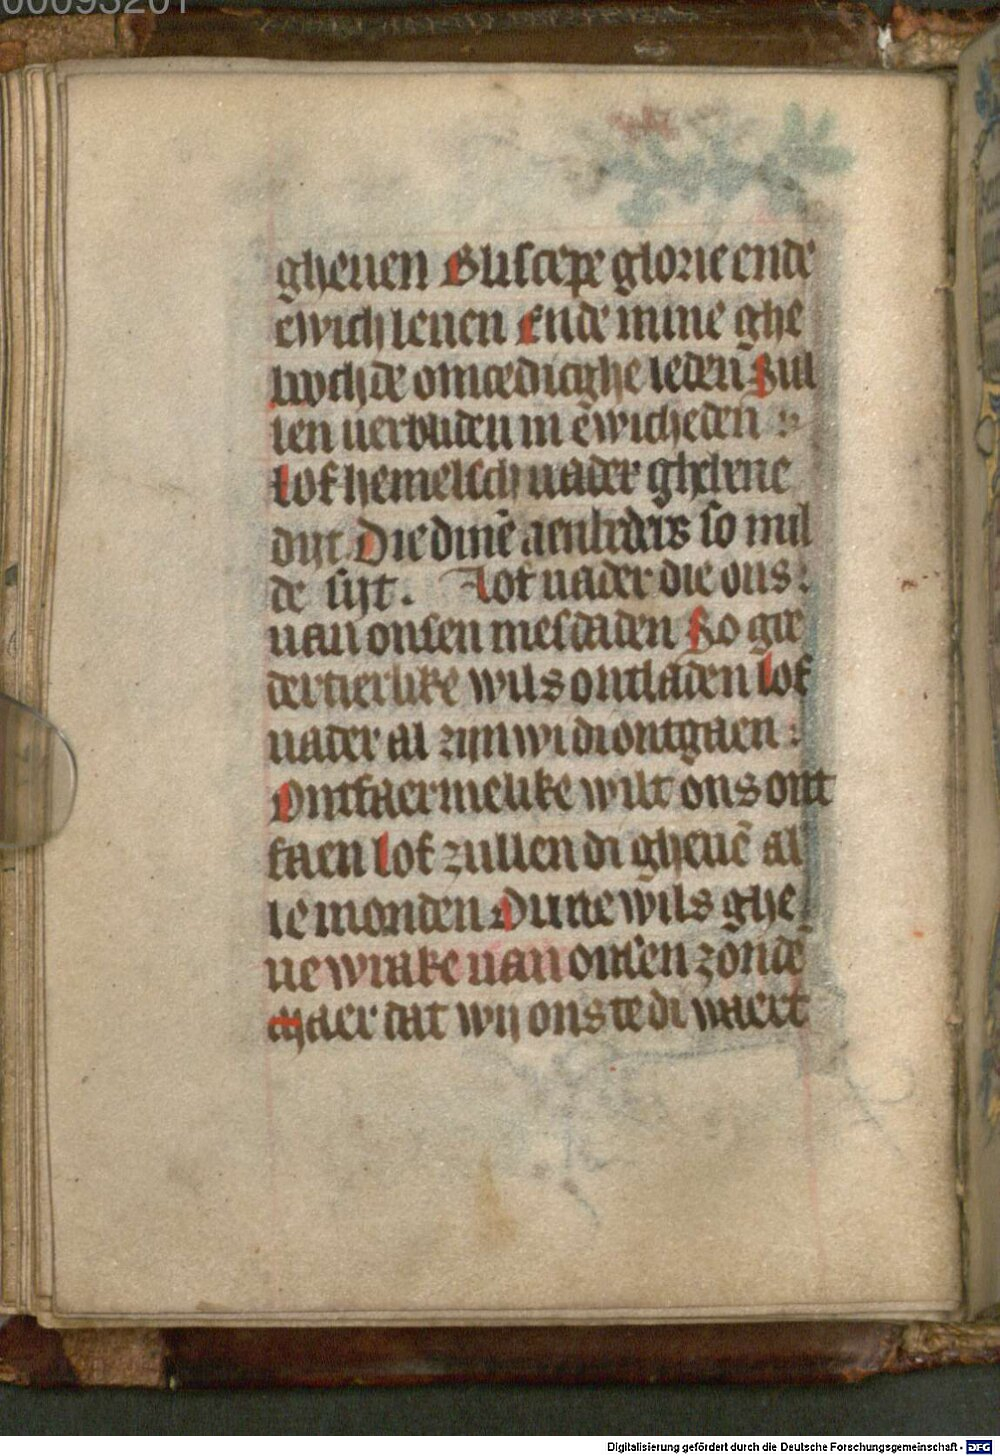 00093201
gheuen Bliscepe glorie ende
ewich leuen Ende mine ghe
buchde omoedicghe leden Sul
len verbliden in ewicheden :
Lof hemelsch uader ghebene
dijt Die dinē aenbeders so mil
de sijt. Lof uader die ons :
uan onsen mesdaden So goe
dertierlike wils ontladen Lof
uader al zijn wi di ontgaen :
Ontfaermelike wilt ons ont
faen Lof zullen di gheuē al
le monden Du ne wils ghe
ne wrake uan onsen zonde
Maer dat wij ons te di waert
Digitalisierung gefördert durch die Deutsche Forschungsgemeinschaft - DFG